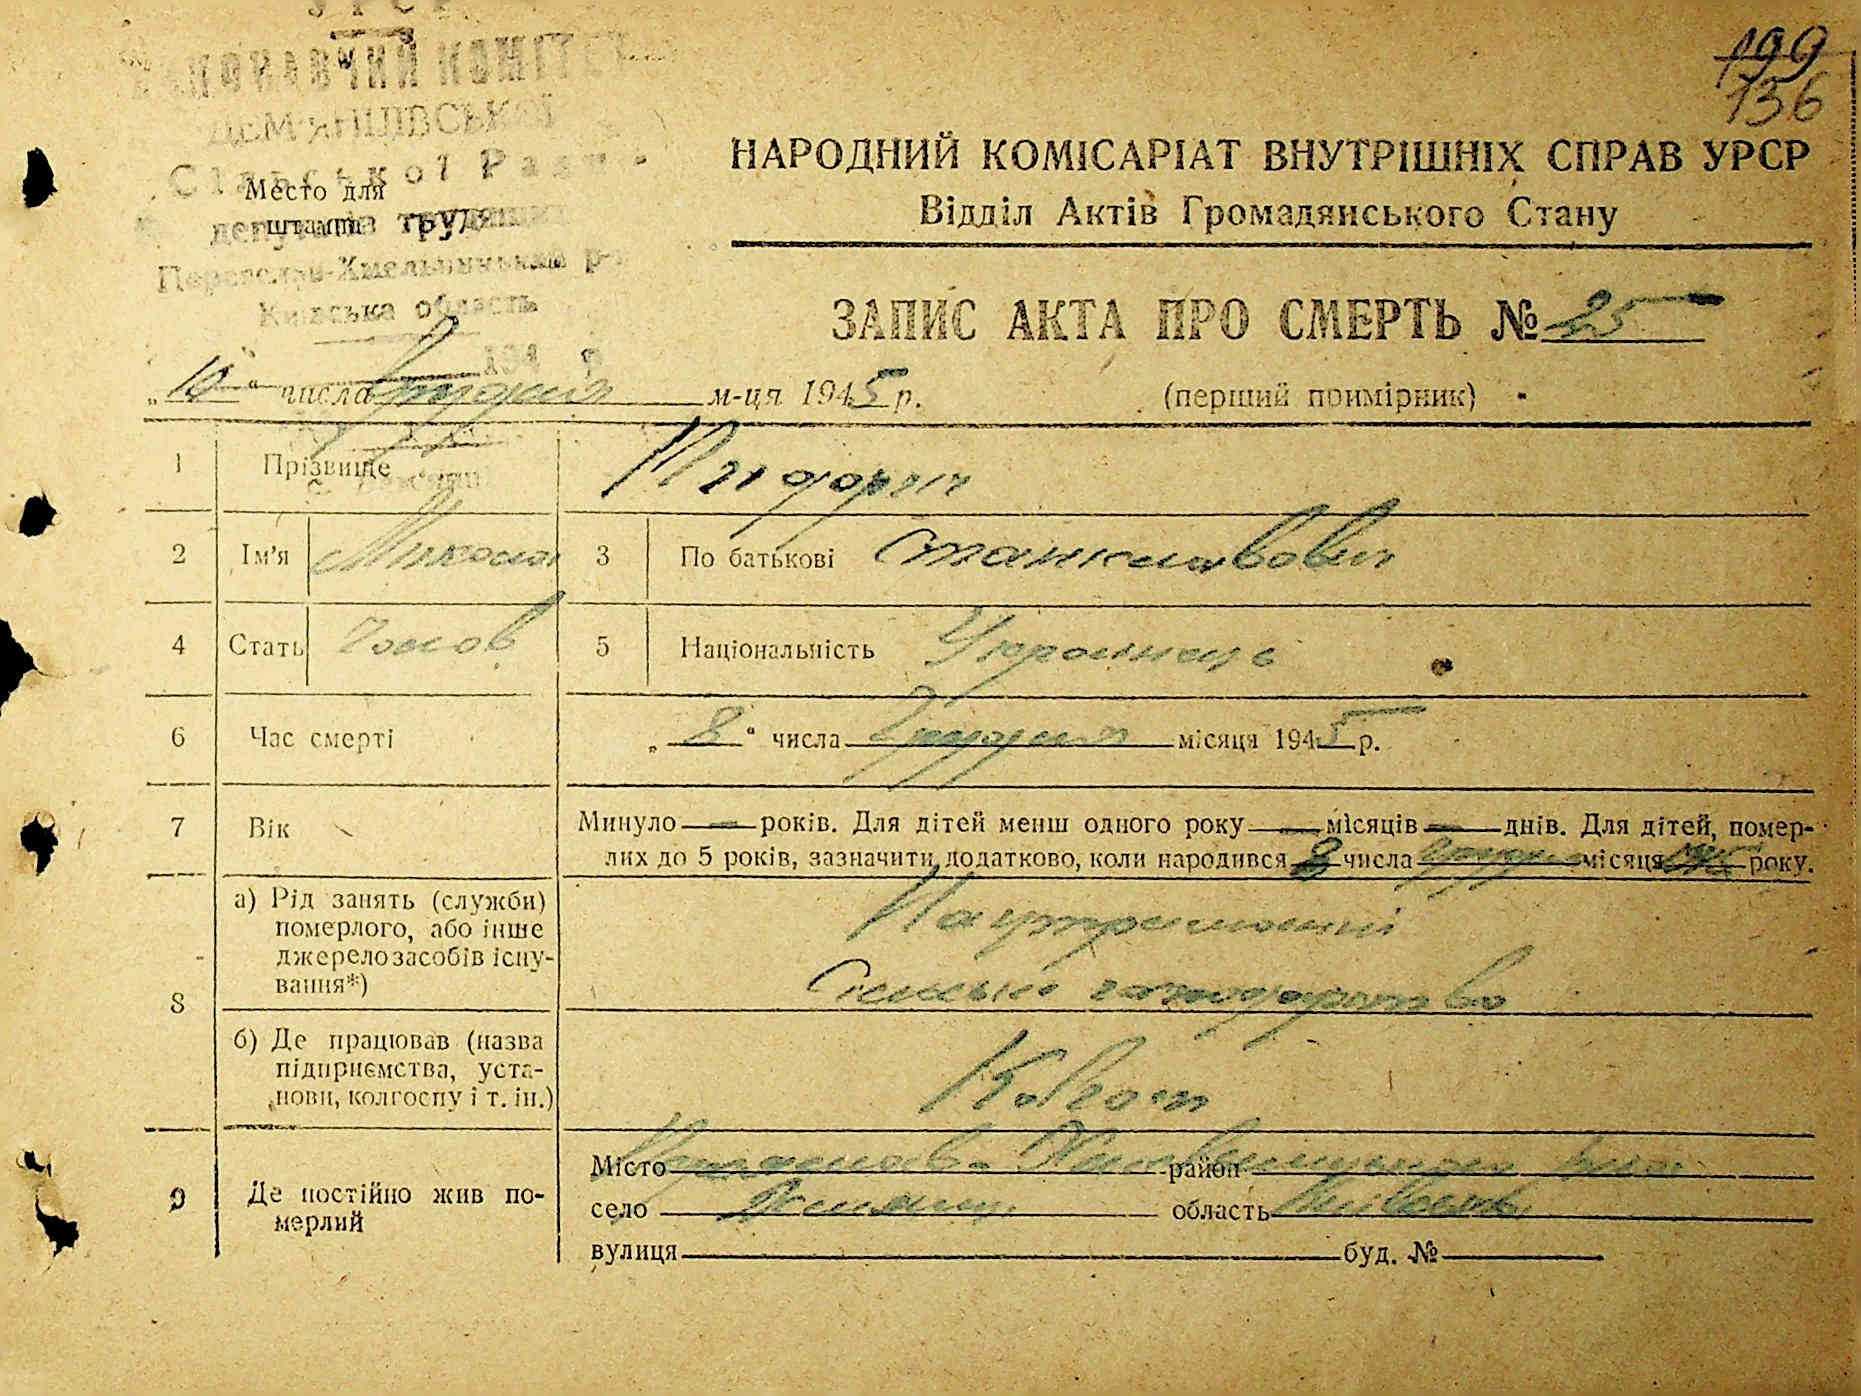 УРСР
ВИКОНАВЧИЙ КОМІТЕТ
ДЕМ'ЯНЦІВСЬКОЇ
Сільської Ради
депутатів трудящих
Переяслав-Хмельницький р-н
Київська область
194 р.
Место для
штампа
199
136
НАРОДНИЙ КОМІСАРІАТ ВНУТРІШНІХ СПРАВ УРСР
Відділ Актів Громадянського Стану
ЗАПИС АКТА ПРО СМЕРТЬ № 25
„10“ числа грудня м-ця 1945 р. (перший примірник)
1 Прізвище
2 Ім'я Микола 3 По батькові Станиславович
4 Стать Чолов 5 Національність Українець
6 Час смерті „8“ числа грудня місяця 1945 р.
7 Вік Минуло — років. Для дітей менш одного року — місяців — днів. Для дітей, помер-
лих до 5 років, зазначити додатково, коли народився 8 числа грудня місяця 1945 року.
8 а) Рід занять (служби)
померлого, або інше
джерело засобів існу-
вання*)
На утриманні
Сельське господарство
б) Де працював (назва
підприємства, уста-
нови, колгоспу і т. ін.)
Колгосп
9 Де постійно жив по-
мерлий
Місто Переяслав-Хмельницький район
село область Київська
вулиця буд. №